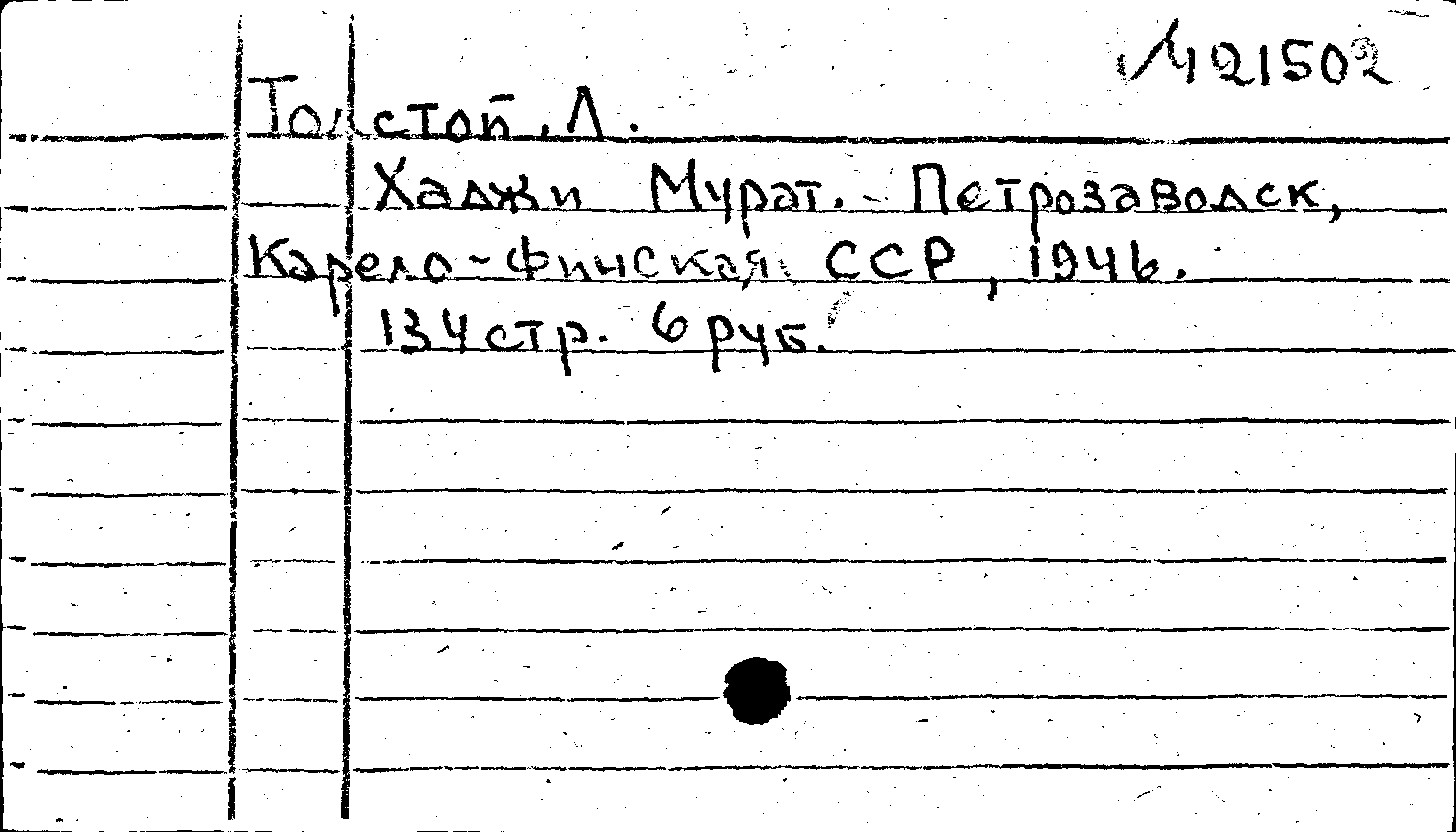 М21502
Толстой, Л.
Хаджи Мурат. - Петрозаводск,
Карело-Финская ССР, 1946.
134 стр. 6 руб.